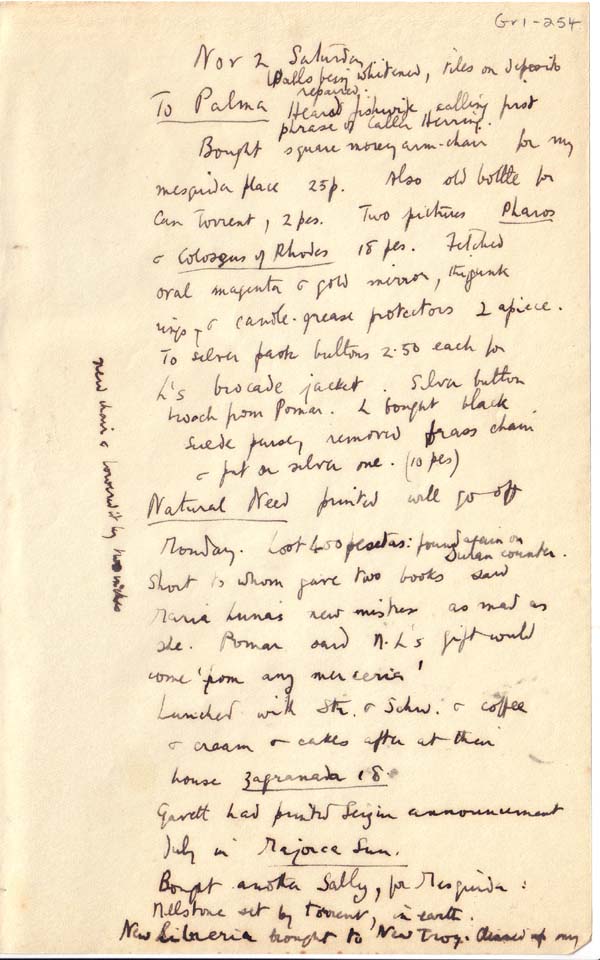 Gr1-254
Nov 2 Saturday
Walls being whitened, tiles on deposito
repaired.
To Palma Heard fishwife calling first
phrase of Caller Herring.
Bought square morey arm-chair for my
mesquida place 25p. Also old bottle for
Can Torrent, 2 pes. Two pictures Pharos
& Colossus of Rhodes 18 pes. Fetched
oval magenta & gold mirror,
rings & candle-grease protectors 2 apiece.
To silver buttons 2.50 each for
L's brocade jacket. Silver button
brooch from Pomar. L bought black
suede purse, removed brass chain
& put on silver one. (10 pes)
Natural Need printed will go off
Monday. Lost 400 pesetas: found again on
counter.
Short to whom gave two books said
Maria Luna's new mistress as mad as
she. Pomar said N.L's gift would
come 'from any merceria'
Lunched with Str. & Schw. & coffee
& cream & cakes after at their
house Zagranada 18.
Gavett had printed Seizin announcement
July in Majorca Sun.
Bought another Sally, for Mesquida:
Millstone set by Torrent, in earth.
New libreria brought to New Troy. Cleaned up my
new chair & lowered it by two inches